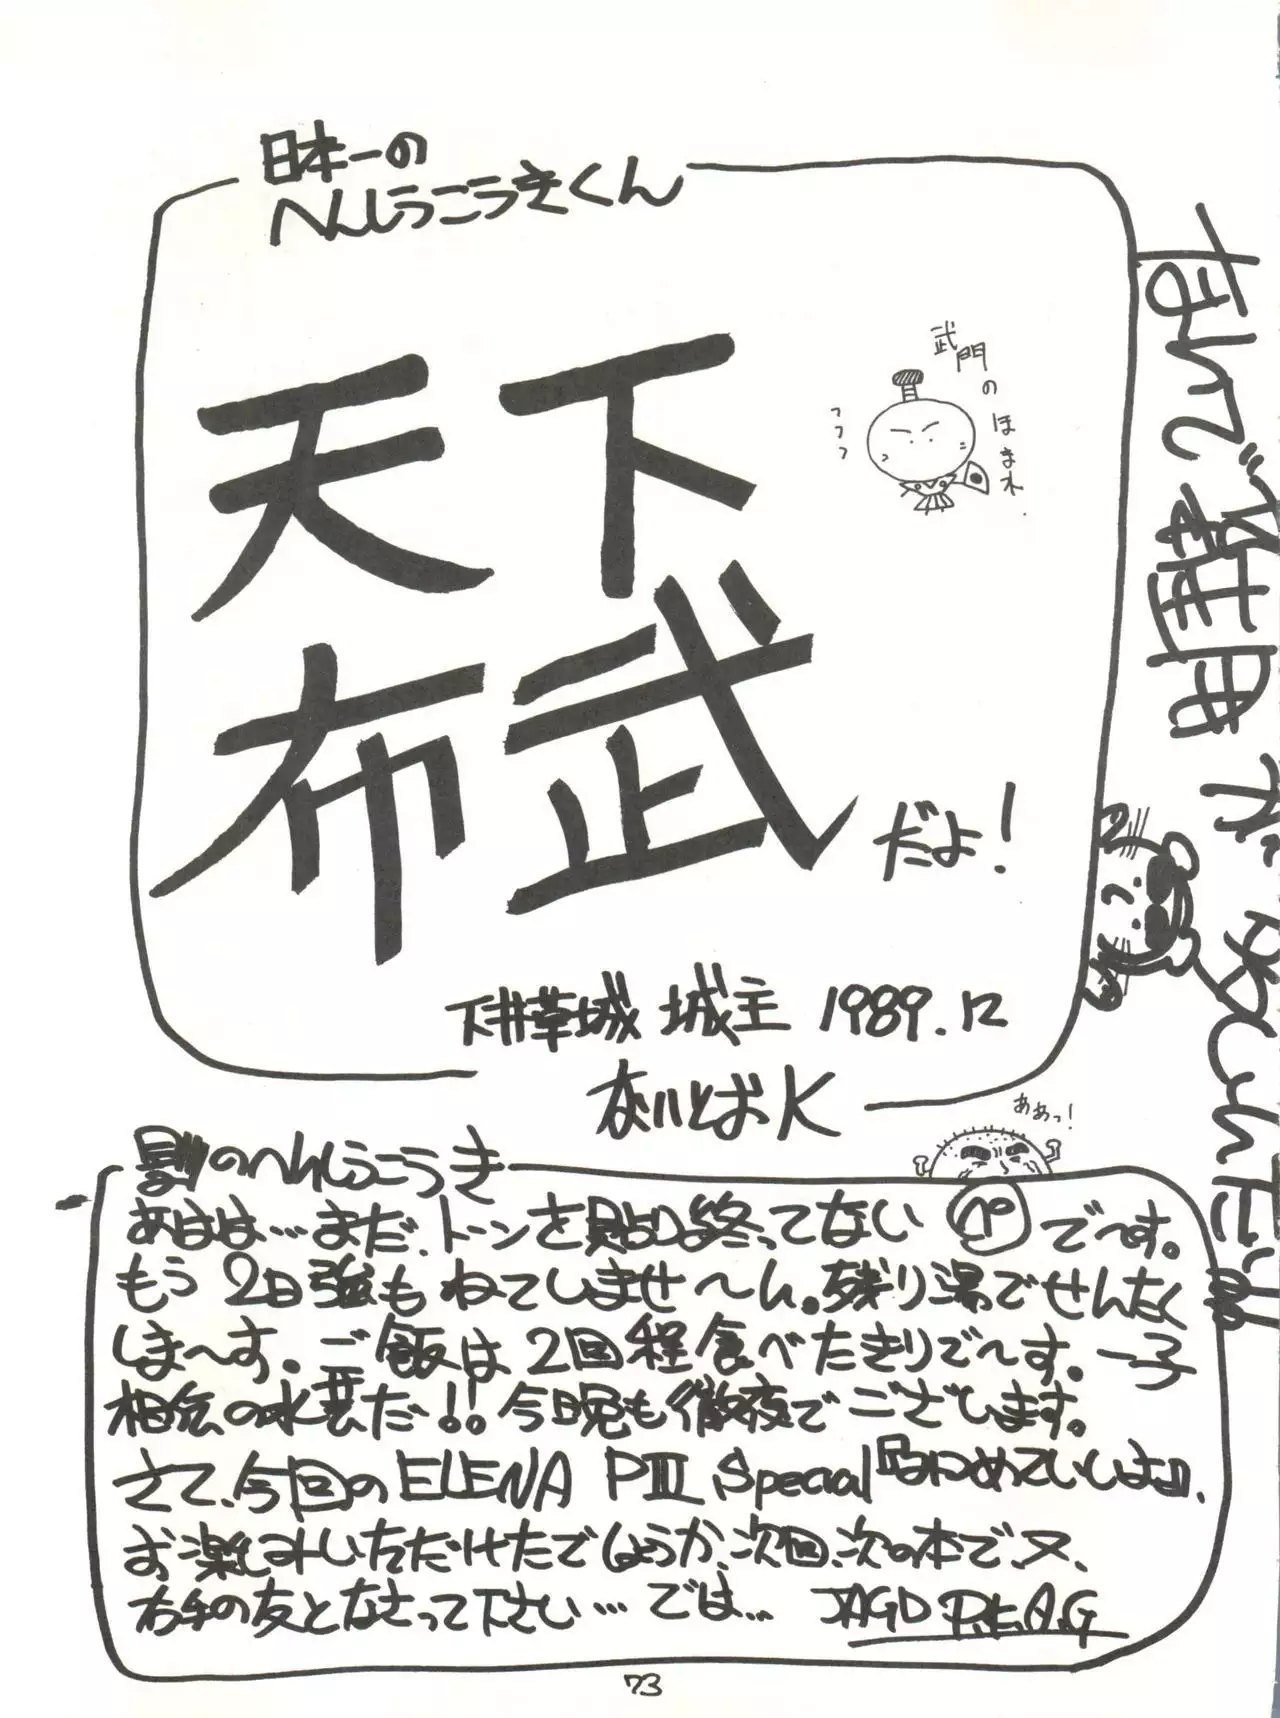 日本一の
へんしうこうきくん
天下
布武
だよ!
武門のほまれ
フフフ
下井草城 城主 1989.12
ないとおK
なんで雑用が
ああっ!
別のへんしうこうき
あはは…まだ、トーンを貼り終ってない ㋬で〜す。
もう2日強もねてしませ〜ん。残り湯でせんたく
しま〜す。ご飯は2回程食べたきりで〜す。一子
相伝の水芸だ!!今晩も徹夜でございます。
さて、今回のELENA PIII Special
お楽しみいただけたでしょうか、次回、次の本で、又、
右手の友となさって下さい…では… JAGD P.E.A.G
73